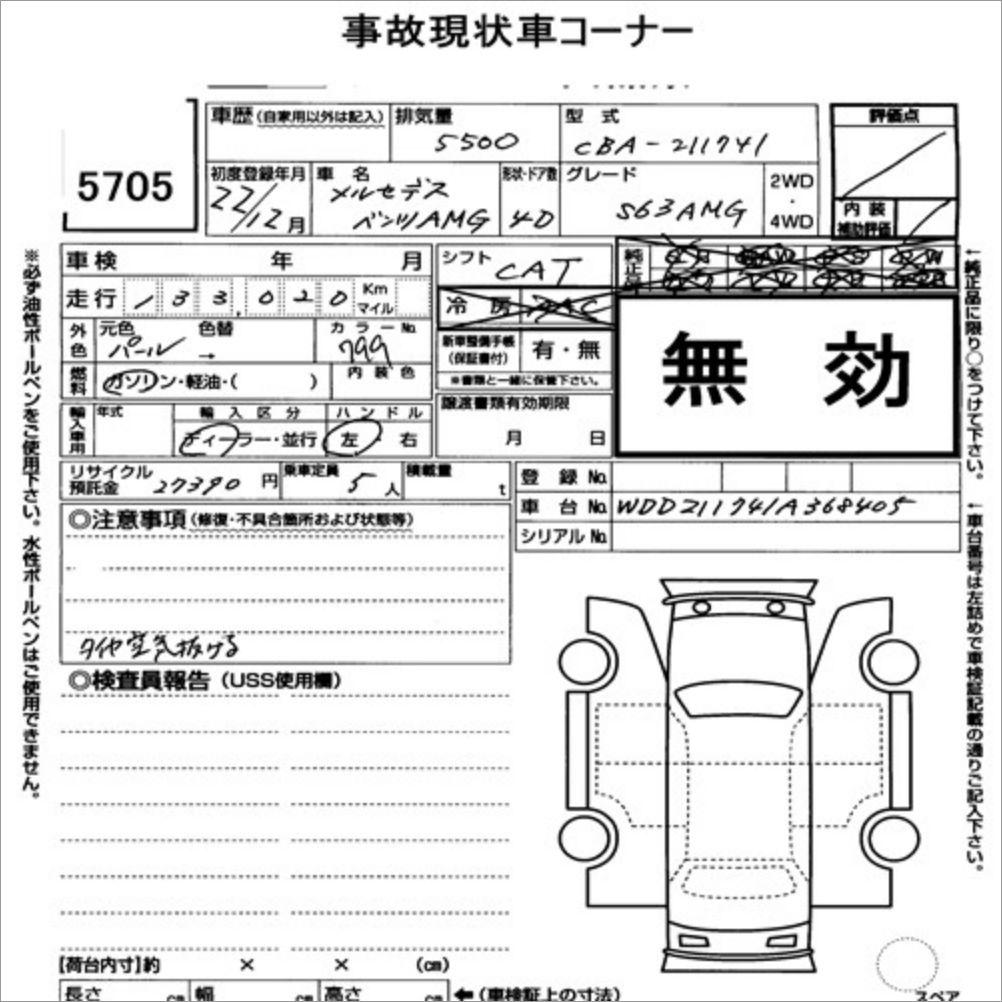 事故現状車コーナー
5705
車歴(自家用以外は記入)
排気量
5500
型式
CBA-211741
評価点
初度登録年月
22/12月
車名
メルセデス
ベンツAMG
形状・ドア数
4D
グレード
S63AMG
2WD
・
4WD
内装
補助評価
車検 年 月
走行 133,020 Km
マイル
シフト
CAT
純正品
冷房 AAC
外色
元色
パール
色替
→
カラーNo.
799
内装色
新車整備手帳
(保証書付)
有・無
※書類と一緒に保管下さい。
無効
燃料
ガソリン・軽油・( )
輸入車用
年式
輸入区分
ディーラー・並行
ハンドル
左・右
譲渡書類有効期限
月 日
リサイクル
預託金
27390円
乗車定員
5人
積載量
t
登録No.
車台No. WDD211741A368405
シリアルNo.
◎注意事項(修復・不具合箇所および状態等)
タイヤ空き抜ける
◎検査員報告(USS使用欄)
[荷台内寸]約 × × (cm)
長さ cm 幅 cm 高さ cm ←(車検証上の寸法)
スペア
※必ず油性ボールペンをご使用下さい。水性ボールペンはご使用できません。
←純正品に限り○をつけて下さい。
←車台番号は左詰めで車検証記載の通りご記入下さい。